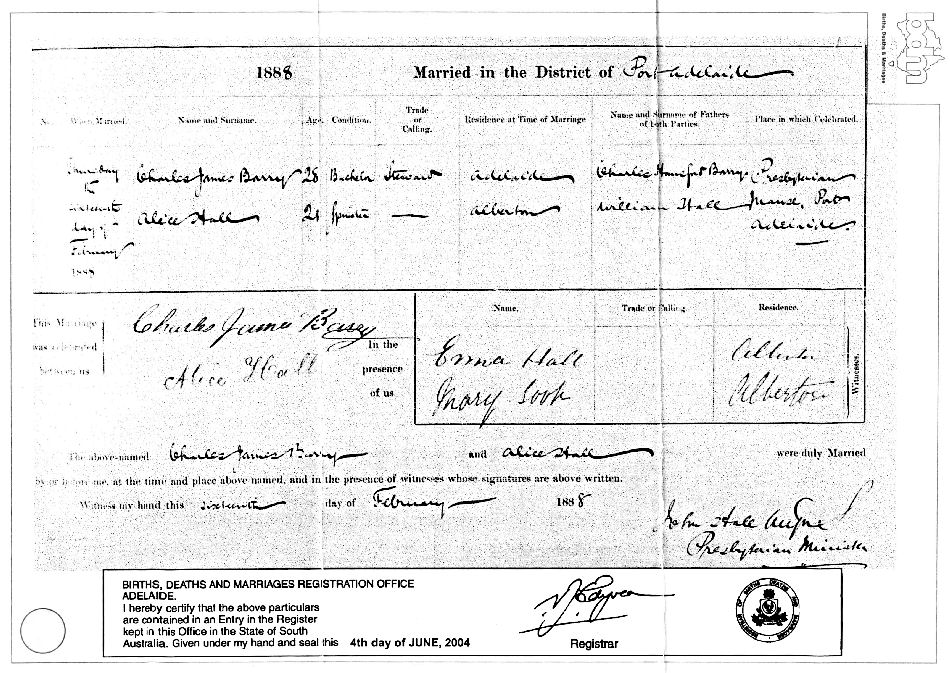 Births, Deaths & Marriages
1888 Married in the District of Port Adelaide
When Married. Name and Surname. Age. Condition. Trade or Calling. Residence at Time of Marriage Name and Surname of Fathers of both Parties. Place in which Celebrated.
Charles James Barry 28 Bachelor Steward Adelaide Charles Barry Presbyterian
sixteenth Alice Hall 21 Spinster — Alberton William Hall Manse, Port
day of Adelaide.
February
1888
Name. Trade or Calling. Residence.
This Marriage Charles James Barry
was celebrated In the Emma Hall Alberton
between us Alice Hall presence Witnesses.
of us Mary Alberton
The above-named Charles James Barry and Alice Hall were duly Married
by or before me, at the time and place above named, and in the presence of witnesses whose signatures are above written.
Witness my hand this sixteenth day of February 1888
John Hall Angus
Presbyterian Minister
BIRTHS, DEATHS AND MARRIAGES REGISTRATION OFFICE
ADELAIDE.
I hereby certify that the above particulars
are contained in an Entry in the Register
kept in this Office in the State of South
Australia. Given under my hand and seal this 4th day of JUNE, 2004
Registrar